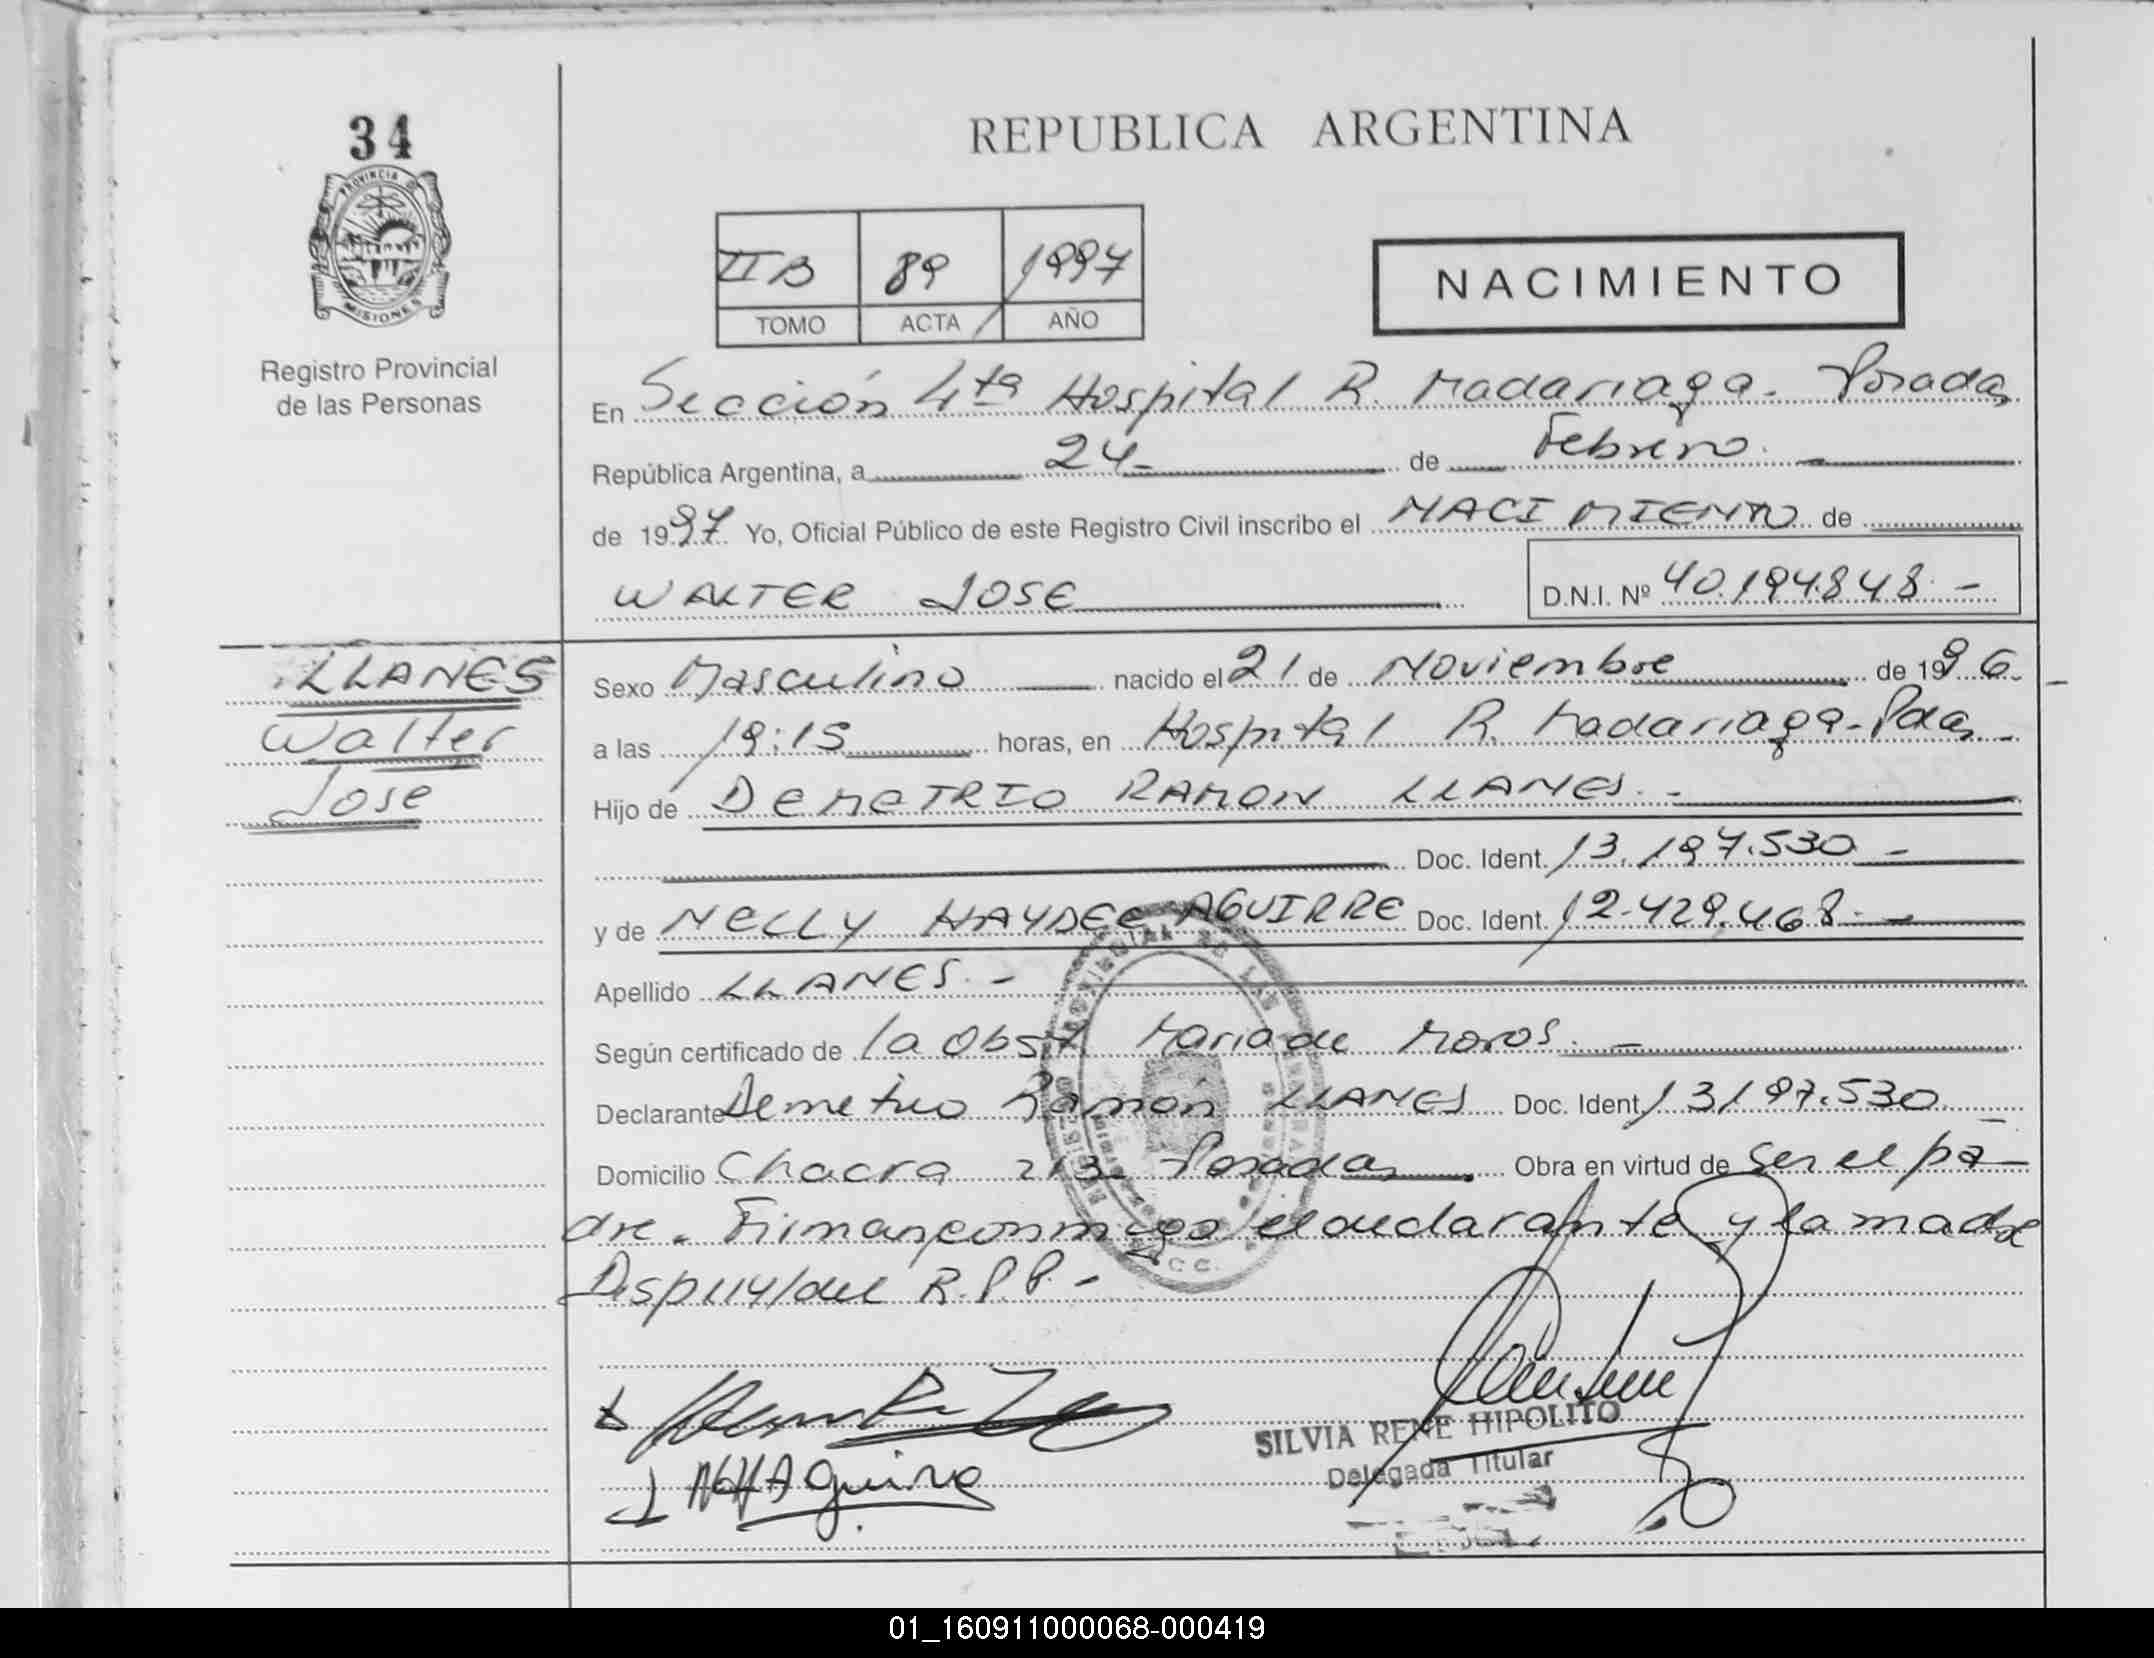 34
PROVINCIA DE
MISIONES
Registro Provincial
de las Personas
REPUBLICA ARGENTINA
II B 89 1997
TOMO ACTA AÑO
NACIMIENTO
En Sección 4ta Hospital R. Madariaga - Posadas
República Argentina, a 24 - de Febrero. -
de 1997 Yo, Oficial Público de este Registro Civil inscribo el NACIMIENTO de
WALTER JOSE D.N.I. Nº 40.194.848 -
LLANES
Walter
Jose
Sexo Masculino nacido el 21 de Noviembre de 1996 -
a las 19:15 horas, en Hospital R. Madariaga - Pdas -
Hijo de DEMETRIO RAMON LLANES. -
Doc. Ident. 13.197.530 -
y de NELLY HAYDEE AGUIRRE Doc. Ident. 12.429.468 -
Apellido LLANES. -
Según certificado de la Obst. Maria de Moros. -
Declarante Demetrio Ramón LLANES Doc. Ident. 13197.530 -
Domicilio Chacra 213 - Posadas Obra en virtud de Ser el pa-
dre. Firman conmigo el declarante y la madre
Disp 114/del R.P.P. -
NHAguirre
SILVIA RENE HIPOLITO
Delegada Titular
01_160911000068-000419